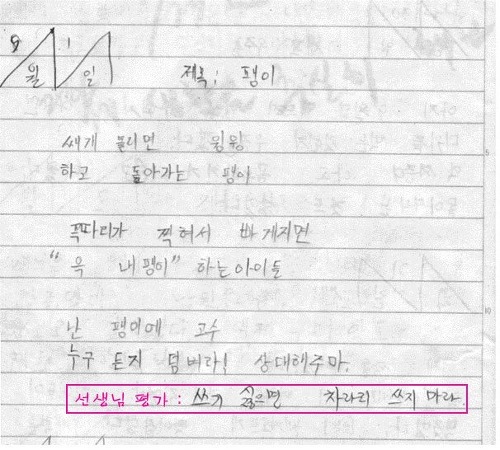 9월 1일
제목: 팽이
쌔개 돌리면 윙윙
하고 돌아가는 팽이
꼭따리가 찍혀서 빠게지면
"윽 내팽이" 하는아이들
난 팽이에 고수
누구 든지 덤벼라! 상대해주마.
선생님 평가 : 쓰기 싫으면 차라리 쓰지 마라.